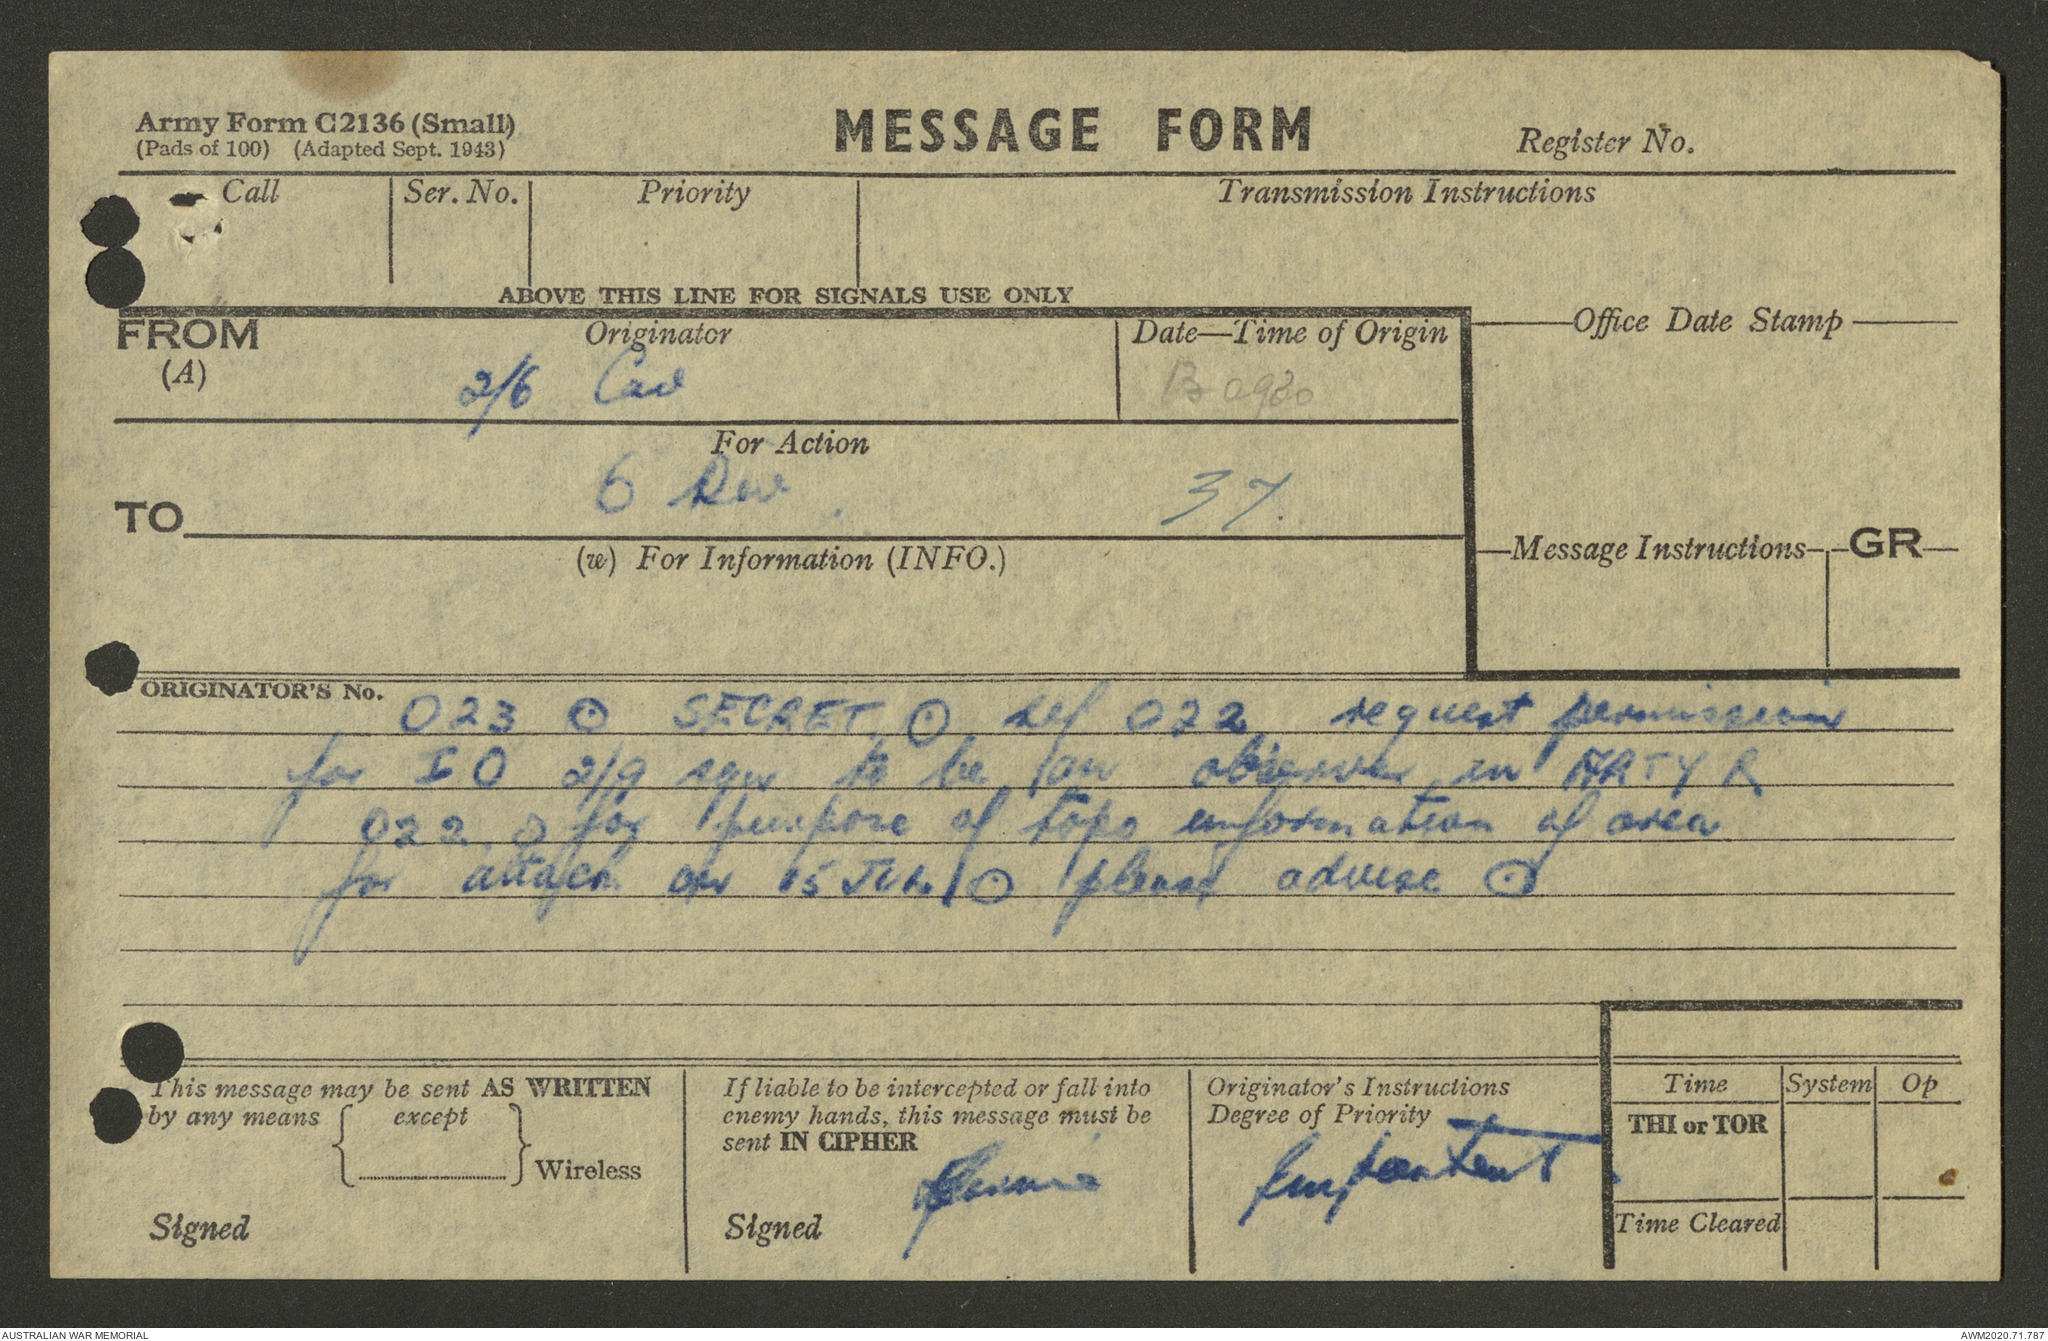 Army Form C2136 (Small)
(Pads of 100) (Adapted Sept. 1943)
MESSAGE FORM
Register No.
Call
Ser. No.
Priority
Transmission Instructions
ABOVE THIS LINE FOR SIGNALS USE ONLY
FROM
(A)
Originator
2/6 Cav
Date—Time of Origin
Office Date Stamp
For Action
TO
6 Div
37.
(w) For Information (INFO.)
Message Instructions
GR
ORIGINATOR'S No.
023 ⊙ SECRET ⊙ ref 022 request permission
for IO 2/9 sqn to be an observer in ARTY R
022 ⊙ for purpose of topo information of area
for attack on 15 Jul ⊙ please advise ⊙
This message may be sent AS WRITTEN
by any means except
Wireless
Signed
If liable to be intercepted or fall into
enemy hands, this message must be
sent IN CIPHER
Signed
Originator's Instructions
Degree of Priority
Important
Time
System
Op
THI or TOR
Time Cleared
AUSTRALIAN WAR MEMORIAL
AWM2020.71.787